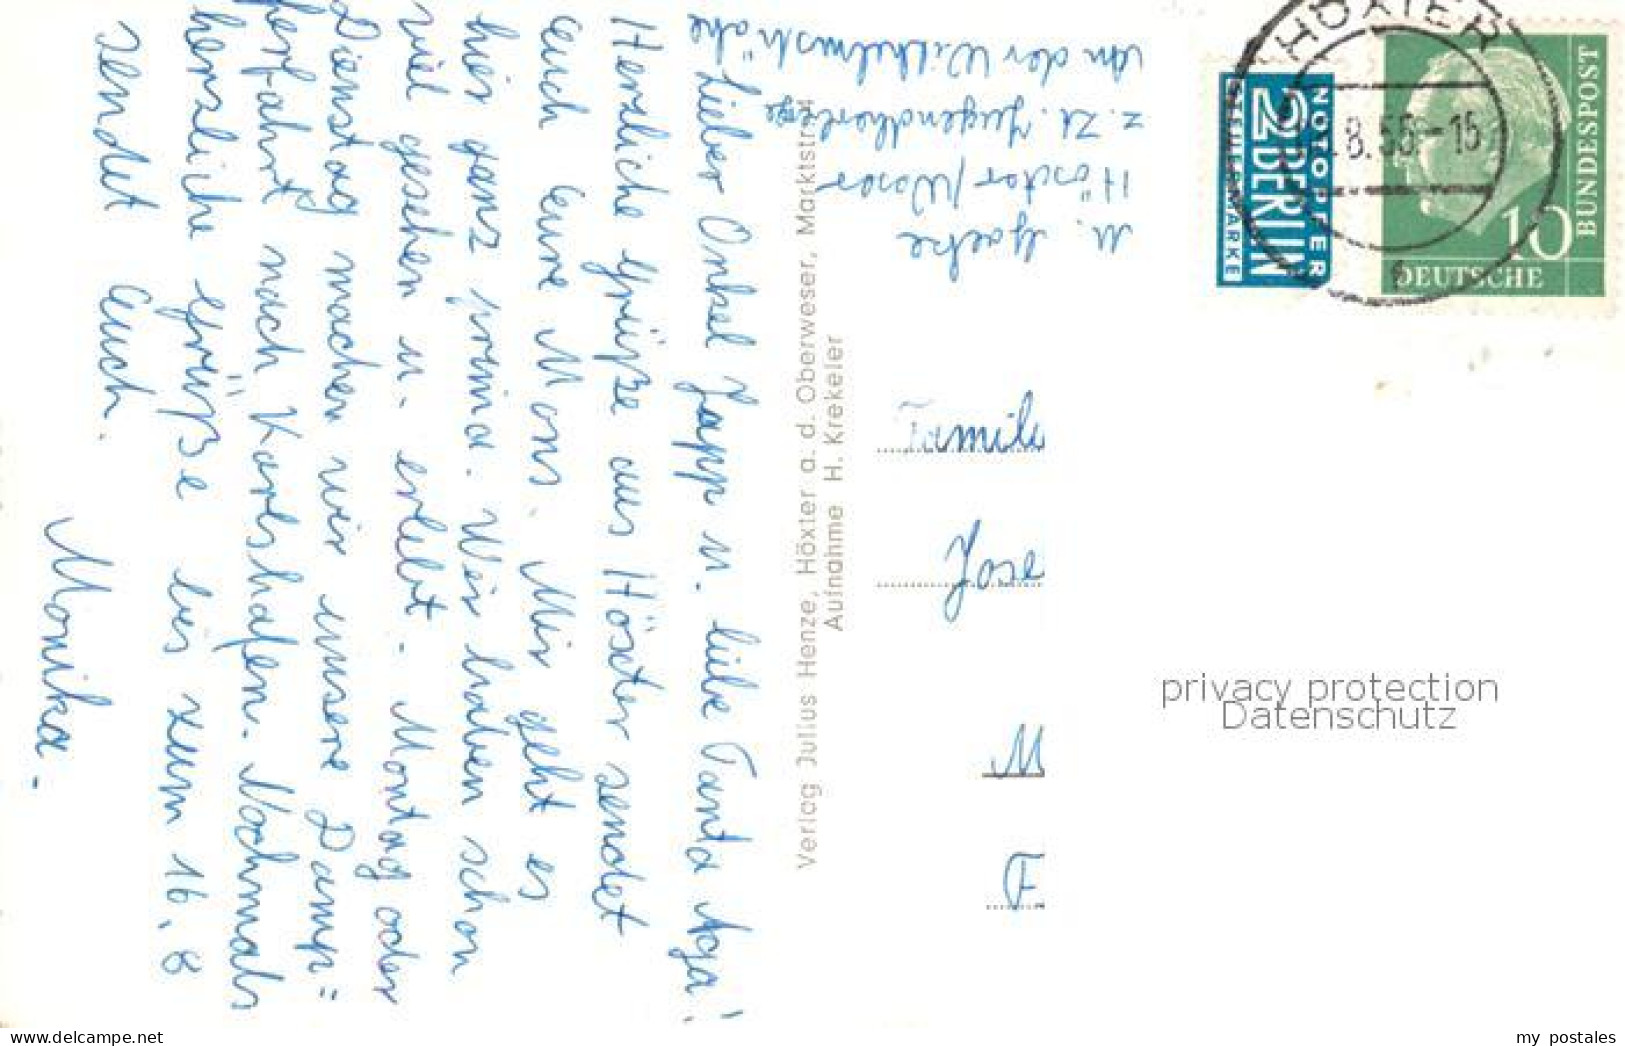 Lieber Onkel Japp u. liebe Tanta Aga!
Herzliche Grüße aus Höxter sendet
euch eure Mons. Mir geht es
hier ganz prima. Wir haben schon
viel gesehen u. erlebt. Montag oder
Dienstag machen wir unsere Damp=
ferfahrt nach Karlshafen. Nochmals
herzliche Grüße bis zum 16.8
sendet euch.
Monika.
Verlag Julius Henze, Höxter a. d. Oberweser, Marktstr.
Aufnahme H. Krekeler
M.
Höxter/Weser
z. Zt. Jugendherberge
An der Wilhelmshöhe
HÖXTER
8.56-15
NOTOPFER
2 BERLIN
STEUERMARKE
10
DEUTSCHE
BUNDESPOST
Famili
Jose
M
F.
privacy protection
Datenschutz
www.delcampe.net
my postales